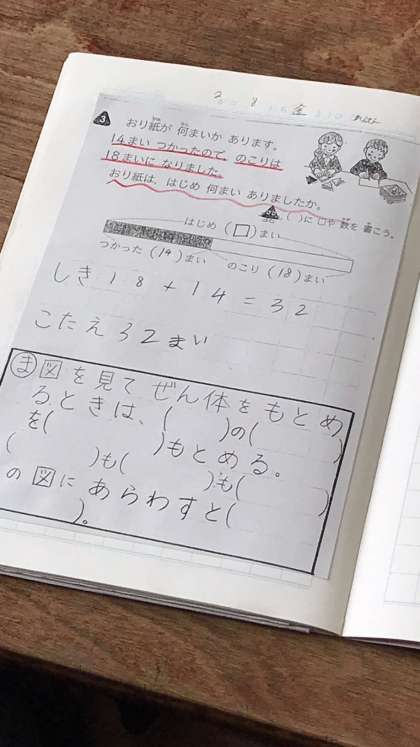 2 8 金
3 おり紙が 何まいか あります。
14まい つかったので、のこりは
18まいに なりました。
おり紙は、はじめ 何まい ありましたか。
( )に □や 数を 書こう。
はじめ (□)まい
つかった (14)まい のこり (18)まい
しき 18+14=32
こたえ 32まい
ま 図を見て ぜん体をもとめ
るときは、( )の( )
を( )もとめる。
( )も( )も( )
の図にあらわすと(
)。